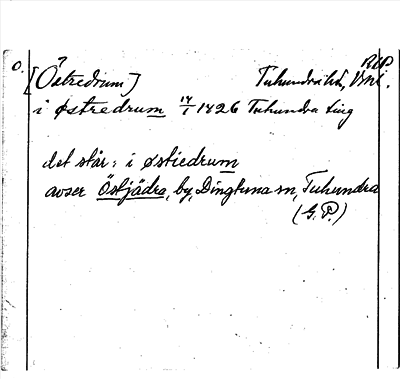 RAP
O. [Östredrum] Tuhundra hd, Vsml.
i østredrum 14/1 1426 Tuhundra ting
det står: i østiedrum
avser Östjädra, by, Dingtuna sn, Tuhundra
(G.P.)